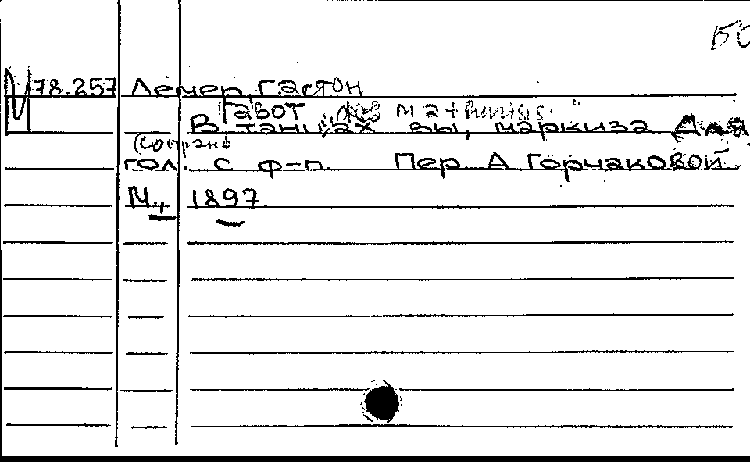 БО
78.257 Лемер, Гастон
Гавот
В танцах вы, маркиза Для
(сопрано
гол. с ф-п. Пер А Горчаковой
М., 1897